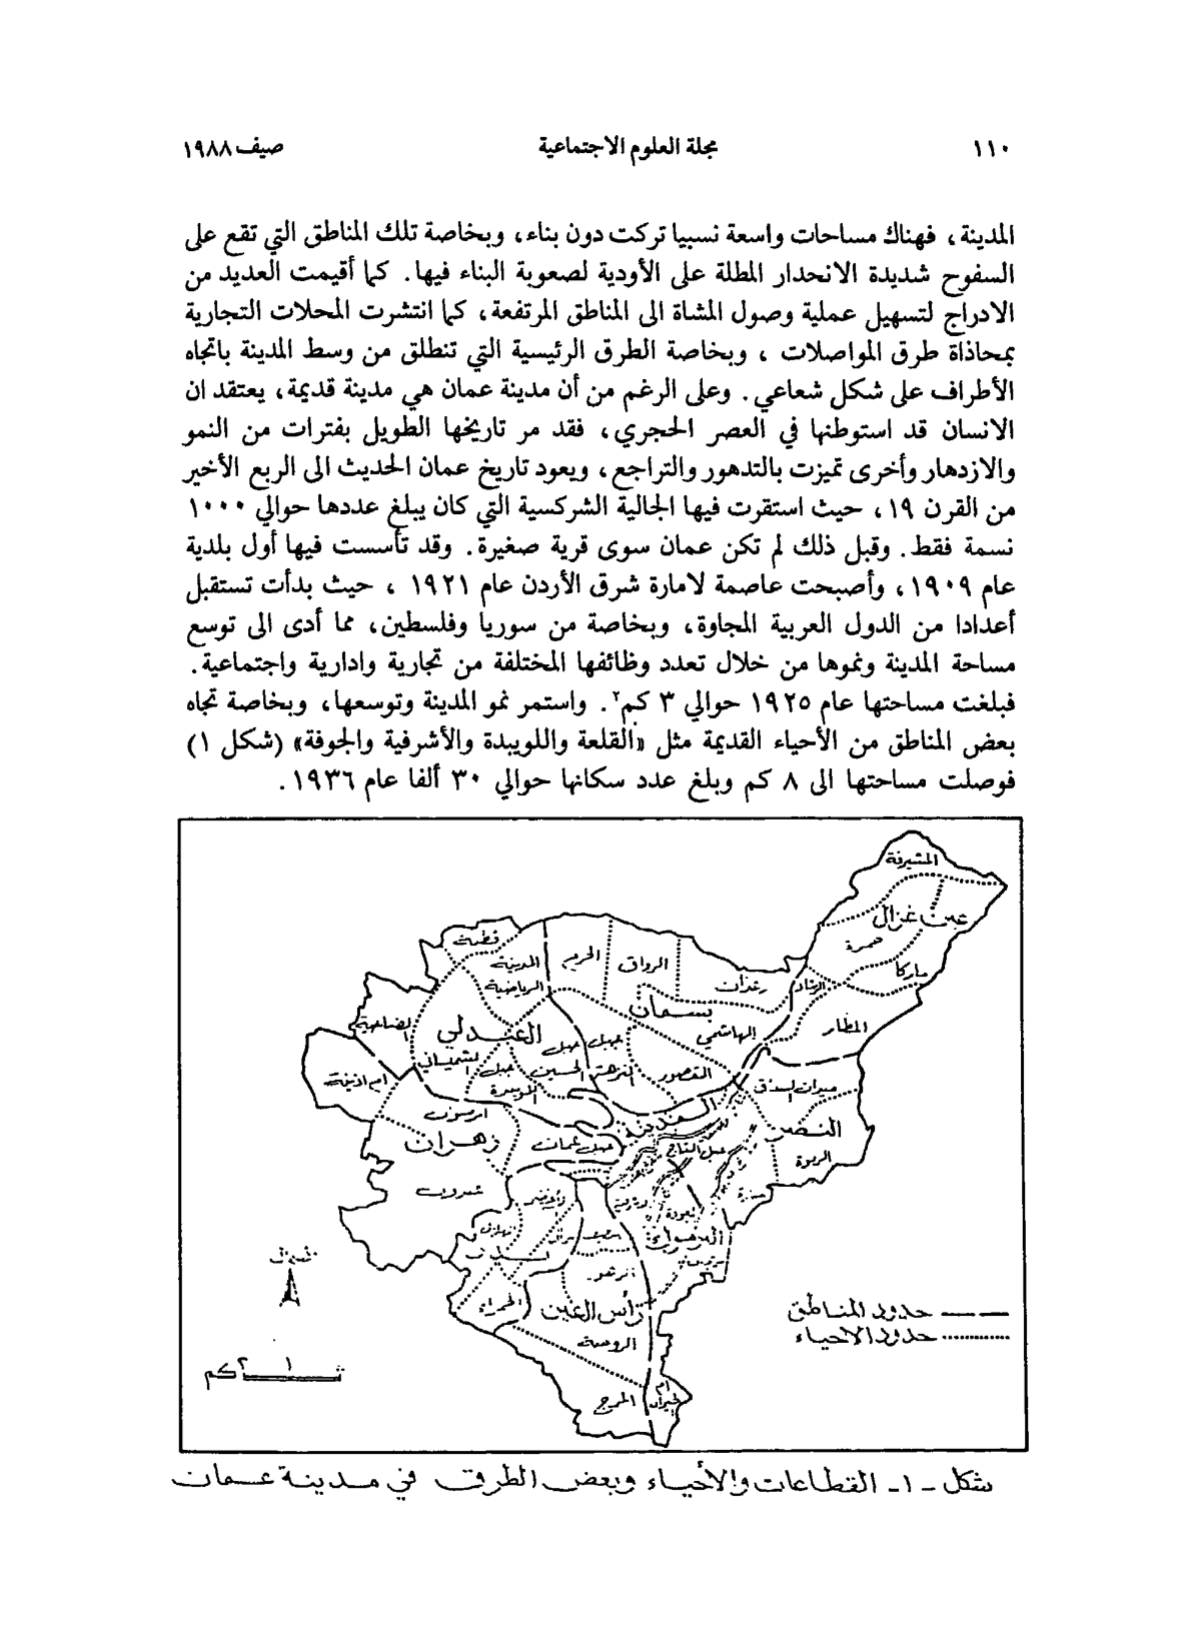 ١١٠ مجلة العلوم الاجتماعية صيف ١٩٨٨
المدينة، فهناك مساحات واسعة نسبيا تركت دون بناء، وبخاصة تلك المناطق التي تقع على
السفوح شديدة الانحدار المطلة على الأودية لصعوبة البناء فيها. كما أقيمت العديد من
الادراج لتسهيل عملية وصول المشاة الى المناطق المرتفعة، كما انتشرت المحلات التجارية
بمحاذاة طرق المواصلات ، وبخاصة الطرق الرئيسية التي تنطلق من وسط المدينة باتجاه
الأطراف على شكل شعاعي. وعلى الرغم من أن مدينة عمان هي مدينة قديمة، يعتقد ان
الانسان قد استوطنها في العصر الحجري، فقد مر تاريخها الطويل بفترات من النمو
والازدهار وأخرى تميزت بالتدهور والتراجع، ويعود تاريخ عمان الحديث الى الربع الأخير
من القرن ١٩، حيث استقرت فيها الجالية الشركسية التي كان يبلغ عددها حوالي ١٠٠٠
نسمة فقط. وقبل ذلك لم تكن عمان سوى قرية صغيرة. وقد تأسست فيها أول بلدية
عام ١٩٠٩، وأصبحت عاصمة لامارة شرق الأردن عام ١٩٢١ ، حيث بدأت تستقبل
أعدادا من الدول العربية المجاوة، وبخاصة من سوريا وفلسطين، مما أدى الى توسع
مساحة المدينة ونموها من خلال تعدد وظائفها المختلفة من تجارية وادارية واجتماعية.
فبلغت مساحتها عام ١٩٢٥ حوالي ٣ كم٢. واستمر نمو المدينة وتوسعها، وبخاصة تجاه
بعض المناطق من الأحياء القديمة مثل «القلعة واللويبدة والأشرفية والجوفة» (شكل ١)
فوصلت مساحتها الى ٨ كم وبلغ عدد سكانها حوالي ٣٠ ألفا عام ١٩٣٦.
المشيرفة
عين غزال
حمزة
ماركا
المطار
الرواق
الحرم
المدينة
الرياضية
بسمان
الهاشمي
القصور
العبدلي
الشميساني
جبل
الحسين
جبل
النزهة
جبل
اللويبدة
ام اذينة
المدينة
النصر
الربوة
زهران
جبل عمان
جبل التاج
عبدون
اليرموك
الحمراء
رأس العين
المرج
شمال
حدود المناطق
حدود الاحياء
١ ٢ كم
شكل -١- القطاعات والأحياء وبعض الطرق في مدينة عمان